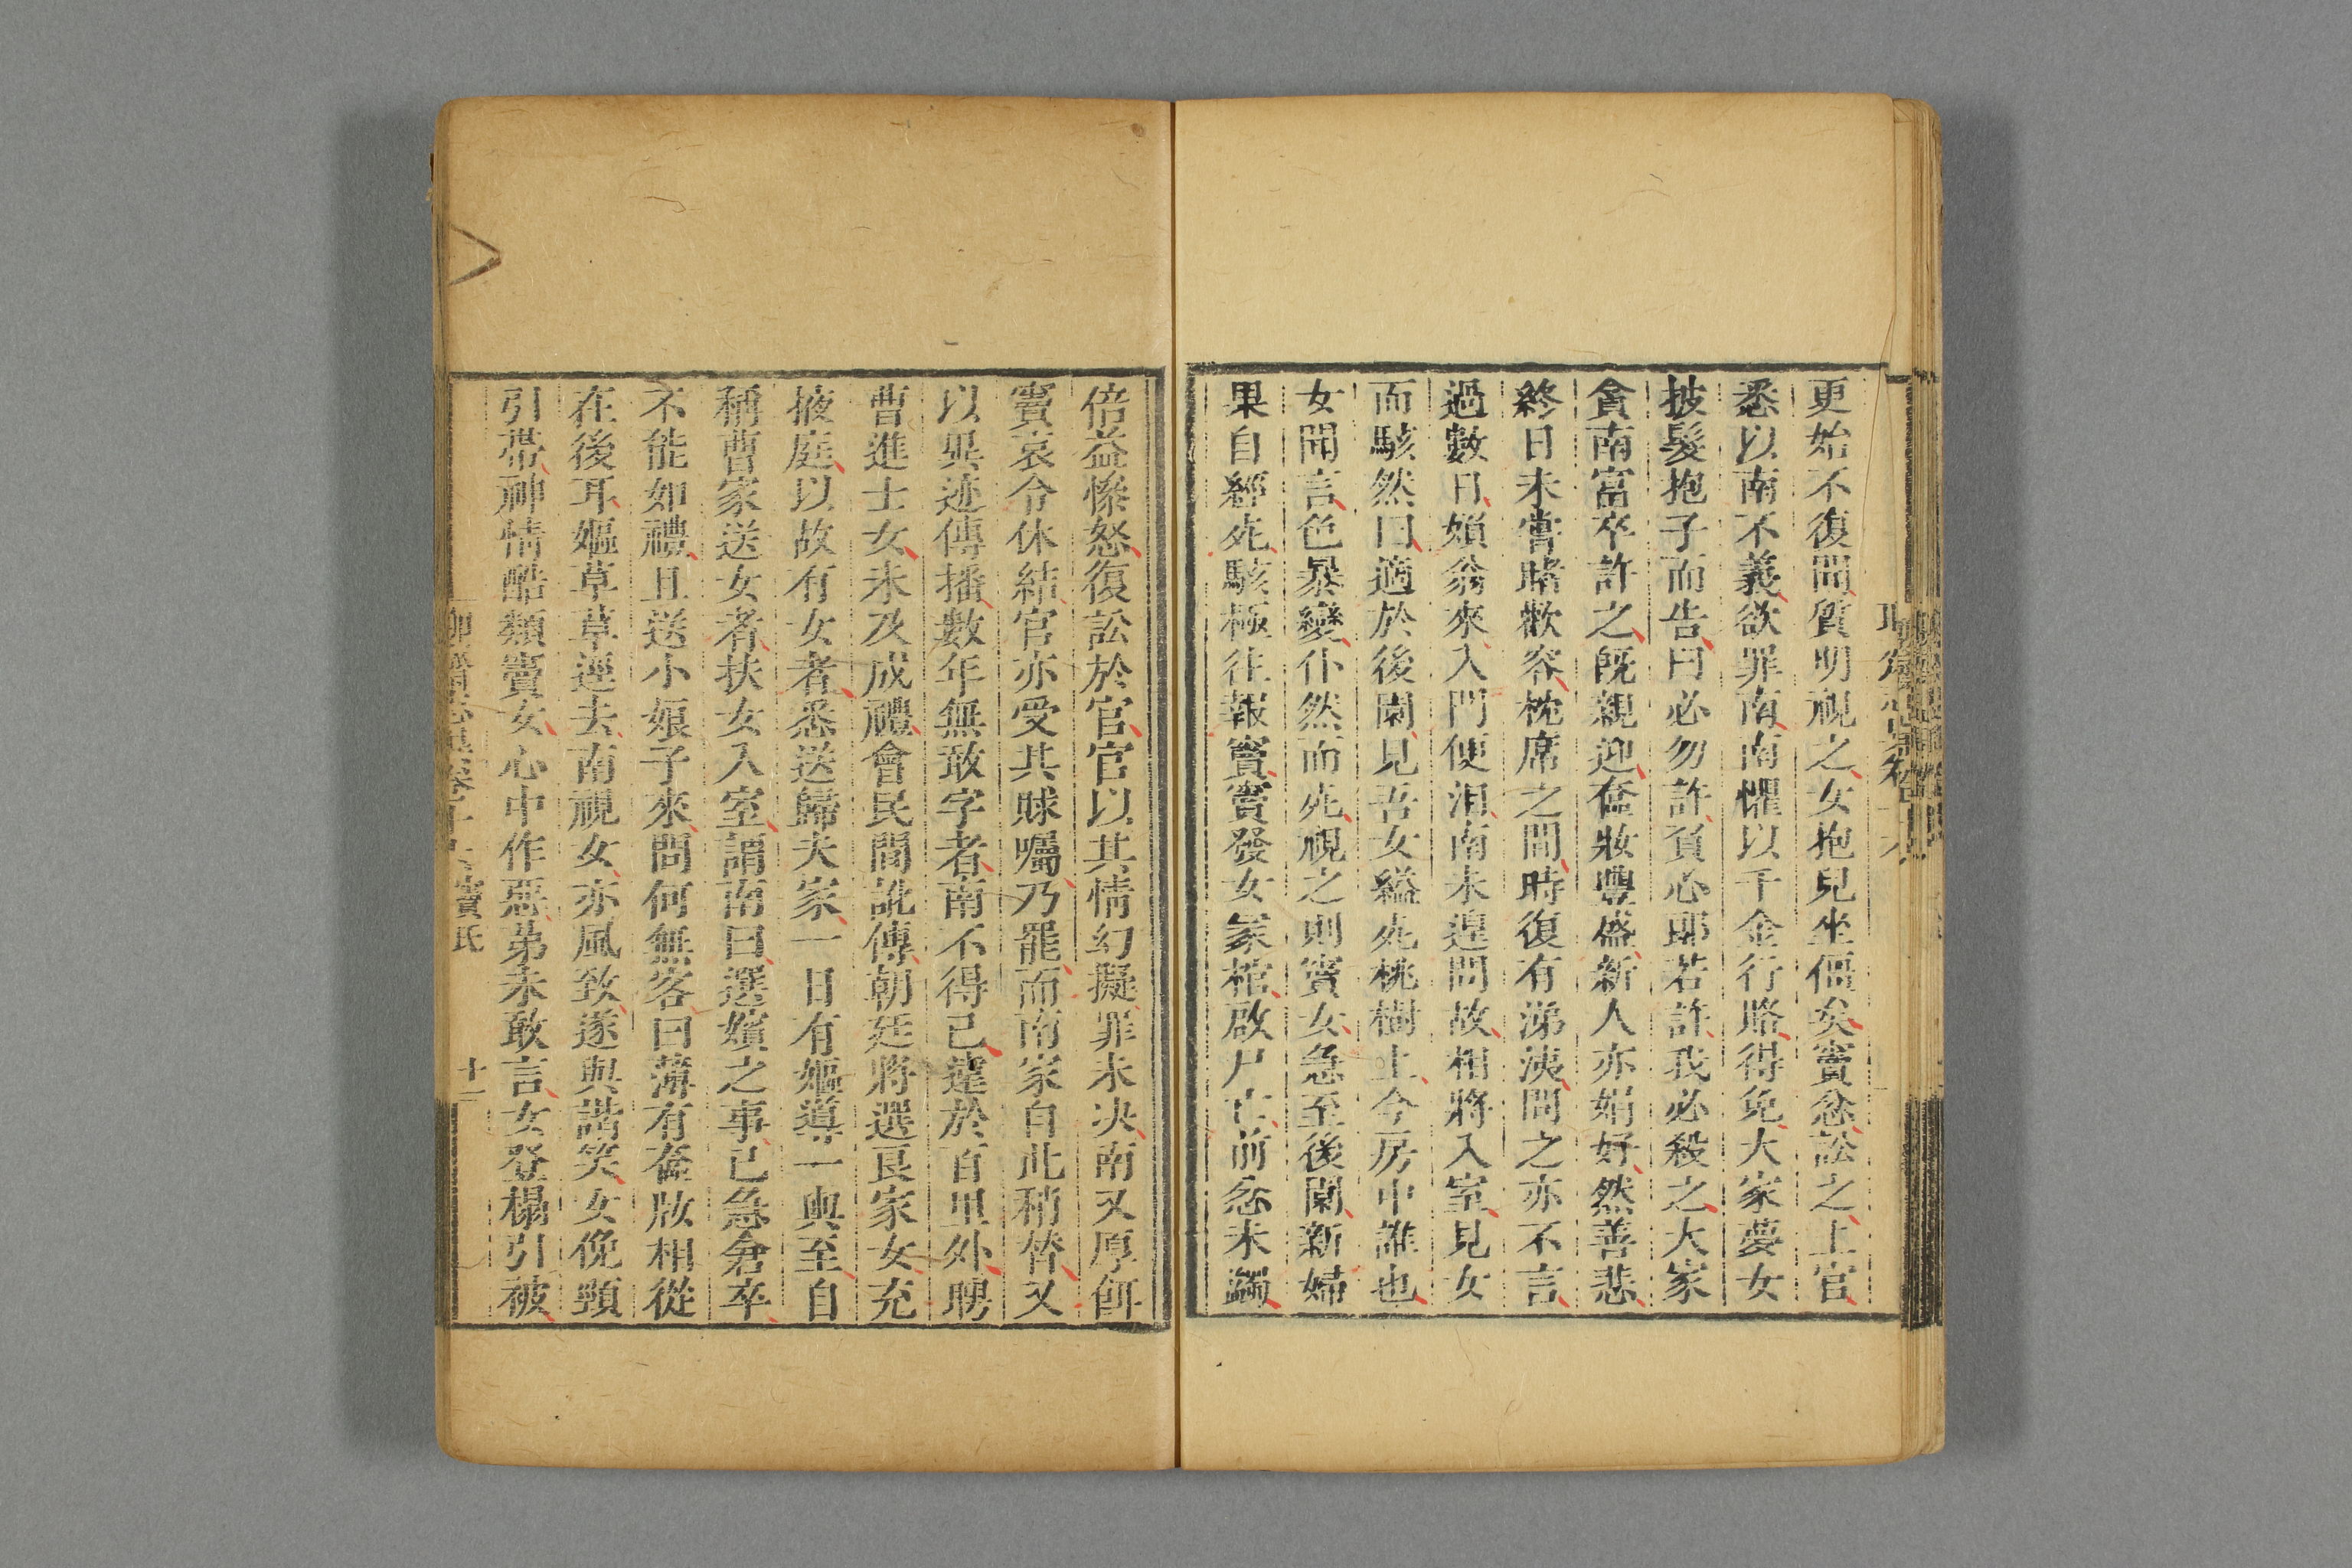 更始不復聞質明視之女抱兒坐僵矣竇忿訟之上官
悉以南不義欲罪南南懼以千金行賂得免大家夢女
披髮抱子而告曰必勿許負心郎若許我必殺之大家
貪南富卒許之既親迎奩妝豐盛新人亦娟好然善悲
終日未嘗睹歡容枕席之間時復有涕洟問之亦不言
過數日婦翁來入門便泪南未遑問故相將入室見女
而駭然曰適於後園見吾女縊死桃樹上今房中誰也
女聞言色暴變仆然而死視之則竇女急至後園新婦
果自經死駭極往報竇竇發女冢棺啟尸亡前忿未蠲
倍益慘怒復訟於官官以其情幻擬罪未決南又厚餌
竇哀令休結官亦受其賕囑乃罷而南家自此稍替又
以異迹傳播數年無敢字者南不得已遠於百里外聘
曹進士女未及成禮會民間訛傳朝廷將選良家女充
掖庭以故有女者悉送歸夫家一日有嫗導一輿至自
稱曹家送女者扶女入室謂南曰選嬪之事已急倉卒
不能如禮且送小娘子來問何無客曰薄有奩妝相從
在後耳嫗草草逕去南視女亦風致遂與諧笑女俛頸
引帶神情酷類竇女心中作惡第未敢言女登榻引被
竇氏
十一